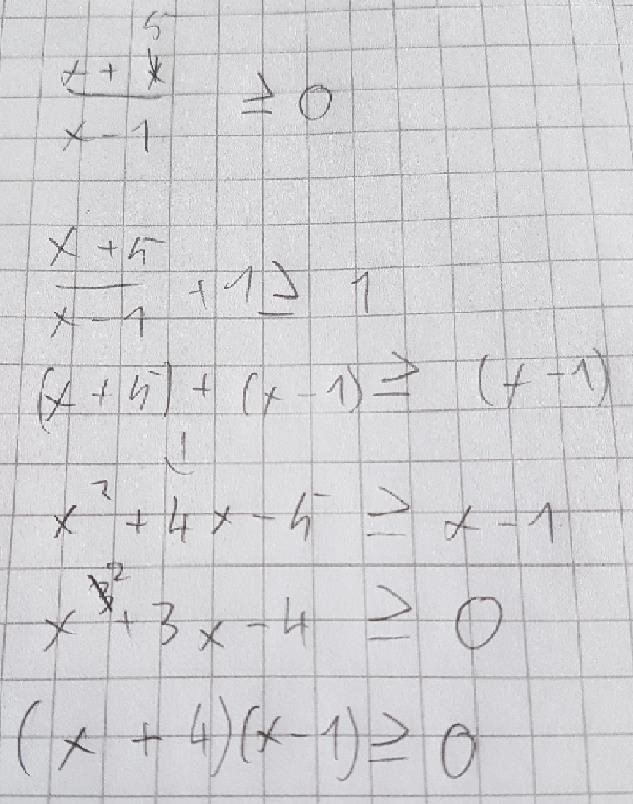 5
x + 
x - 1 ≥ 0
x + 5
x - 1 + 1 ≥ 1
(x + 5) + (x - 1) ≥ (x - 1)
x² + 4x - 5 ≥ x - 1
x² + 3x - 4 ≥ 0
(x + 4)(x - 1) ≥ 0